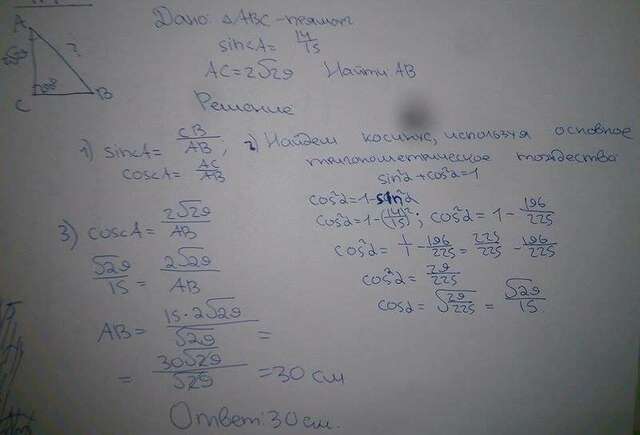 Дано: △ABC - прямоуг
sin∠A = 14/15
AC = 2√29 Найти AB
Решение
A
2√29
?
90°
C
B
1) sin∠A = CB/AB,
cos∠A = AC/AB
2) Найдем косинус, используя основное
тригонометрическое тождество
sin²α + cos²α = 1
cos²α = 1 - sin²α
cos²α = 1 - (14/15)²; cos²α = 1 - 196/225
cos²α = 1/1 - 196/225 = 225/225 - 196/225
cos²α = 29/225
cosα = √29/225 = √29/15
3) cos∠A = 2√29/AB
√29/15 = 2√29/AB
AB = 15·2√29/√29 =
= 30√29/√29 = 30 см
Ответ: 30 см.